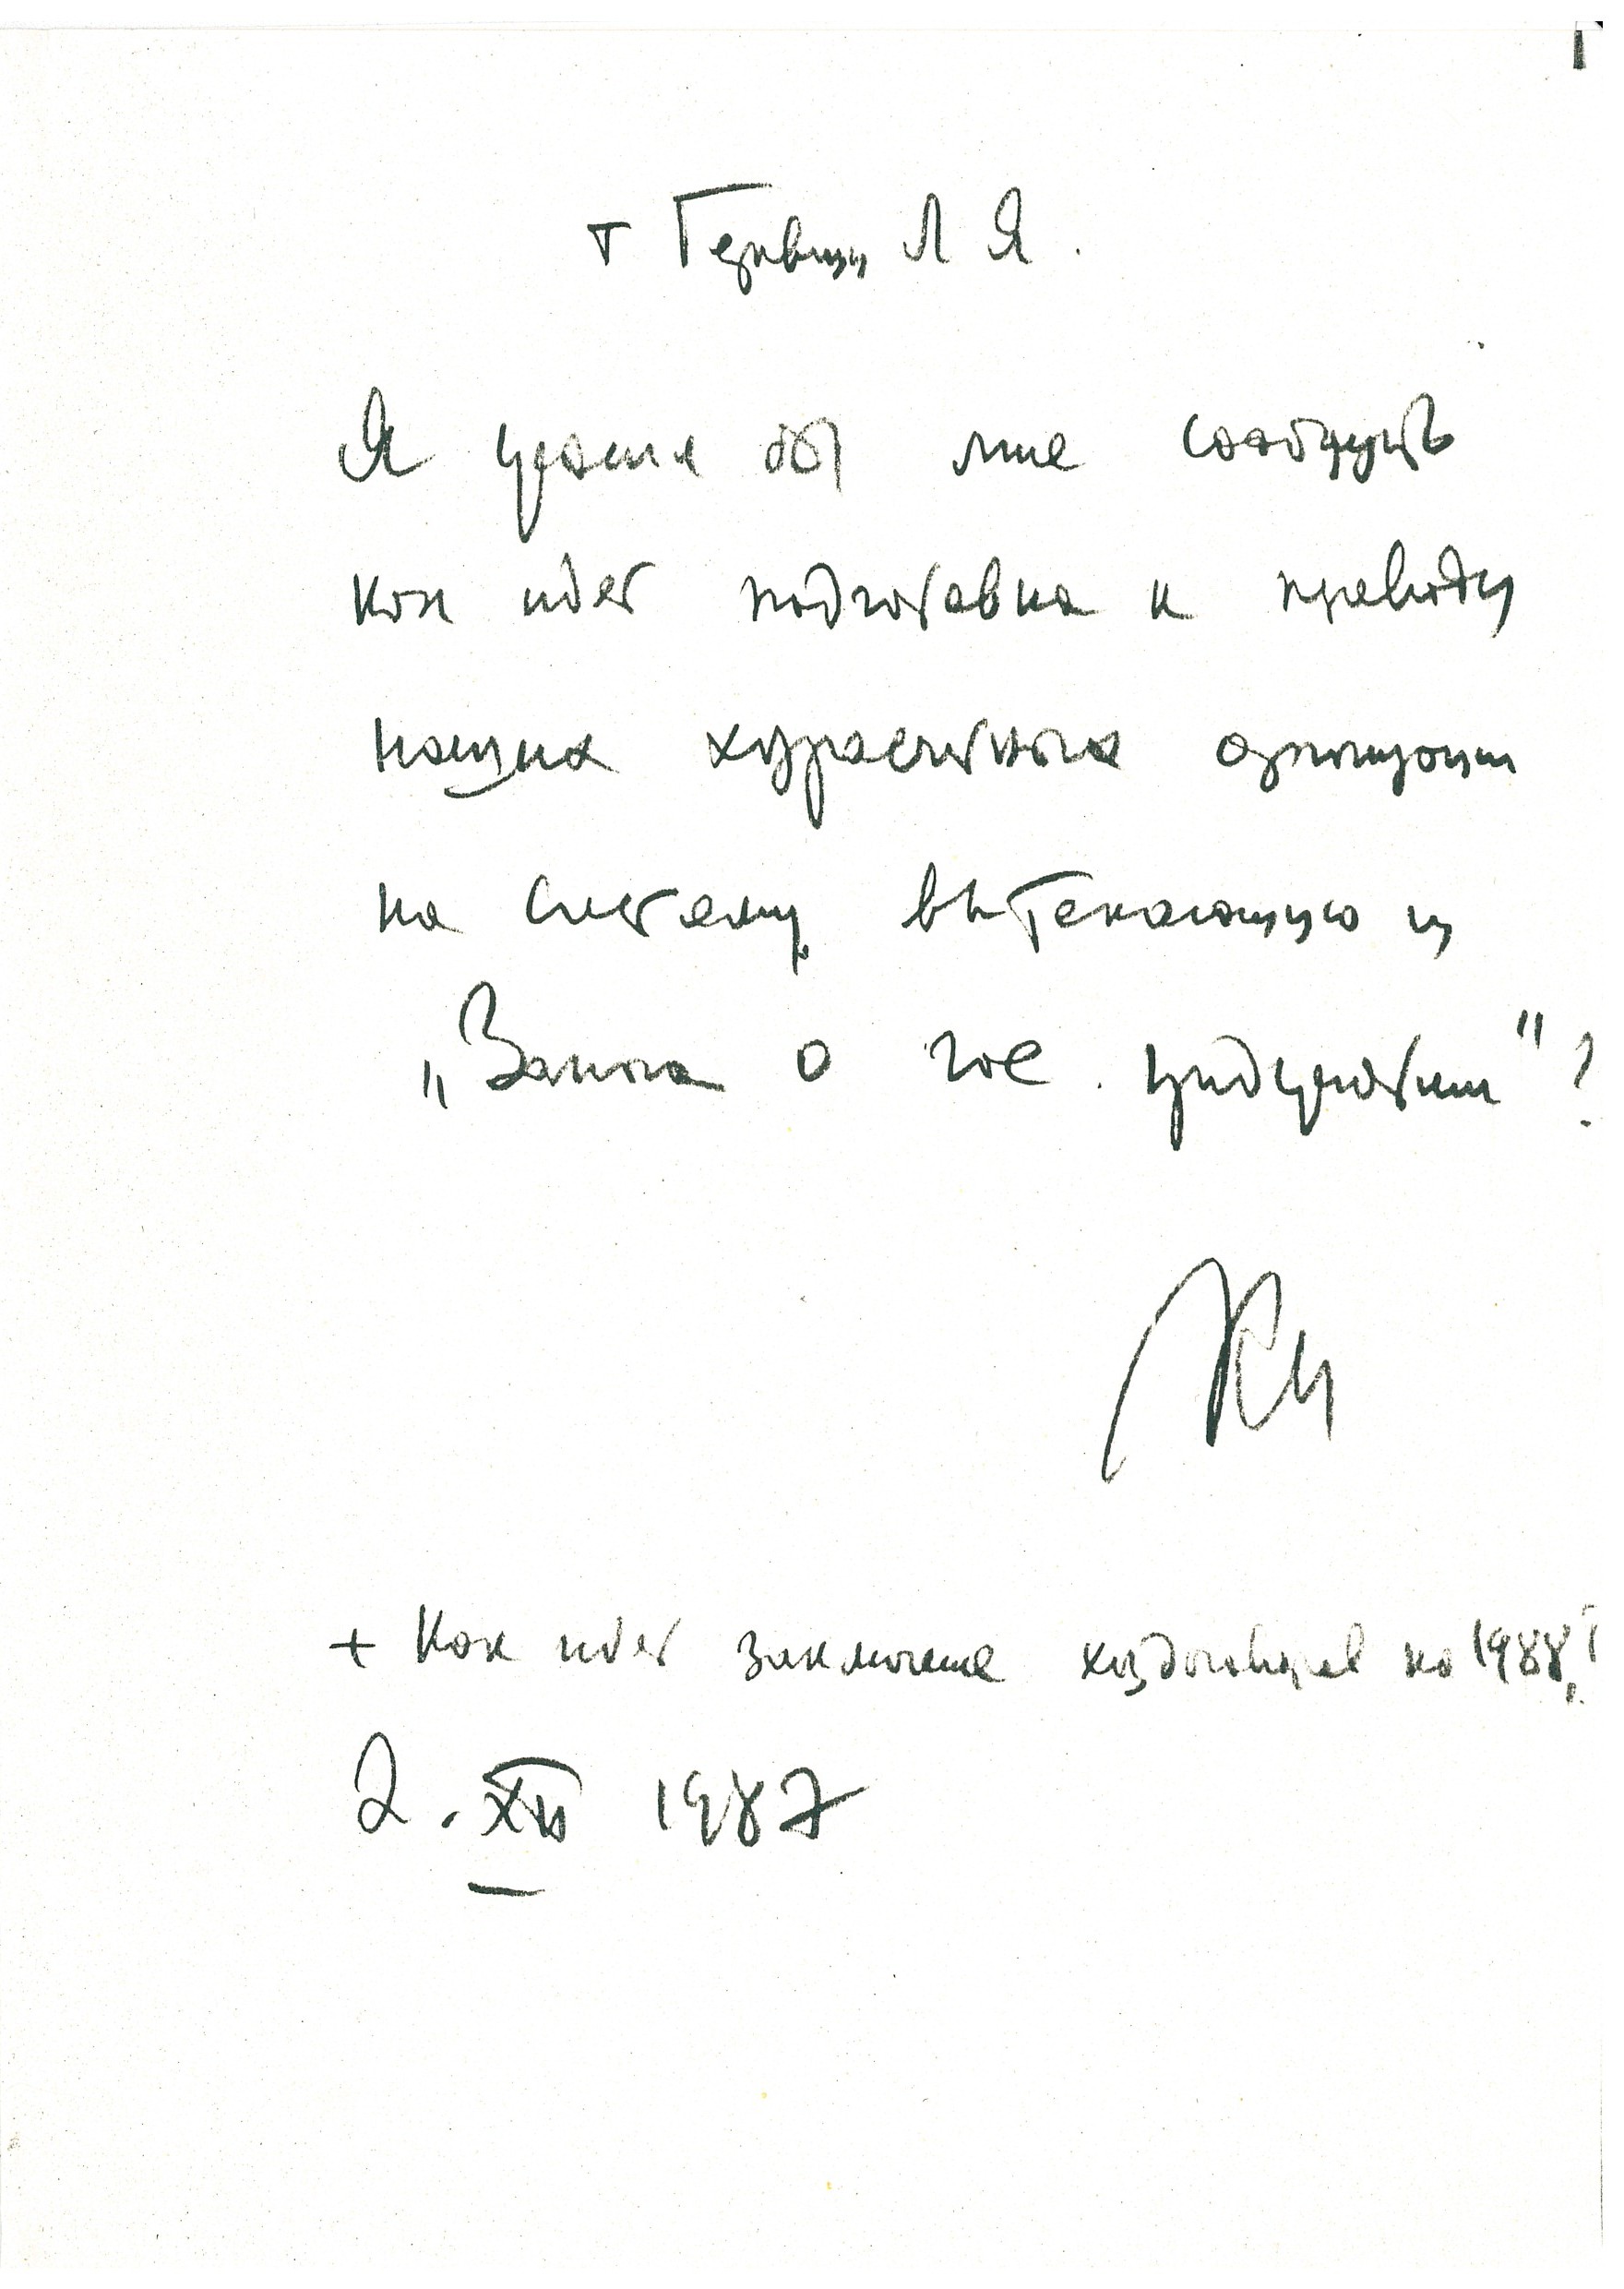 т Гервиц Л Я.
Я просил бы мне сообщить
как идет подготовка к переводу
наших хозрасчетных организации
на систему, вытекающую из
„Закона о гос. предприятии"?
+ Как идет заключение хоздоговоров на 1988 г.?
2. XII 1987